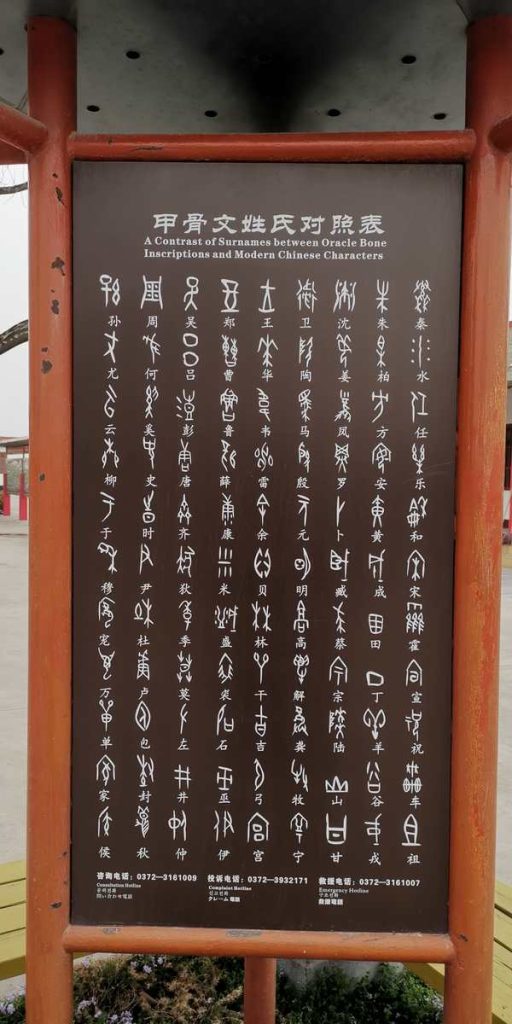 甲骨文姓氏对照表
A Contrast of Surnames between Oracle Bone
Inscriptions and Modern Chinese Characters
孙 周 吴 郑 王 卫 沈 朱 秦
尤 何 吕 曹 华 陶 姜 柏 水
云 奚 彭 鲁 韦 马 凤 方 任
柳 史 唐 薛 雷 殷 罗 安 乐
于 时 齐 康 余 元 卜 黄 和
穆 尹 狄 米 贝 明 臧 成 宋
宠 杜 季 盛 林 高 蔡 田 霍
万 卢 莫 奕 干 解 宗 丁 宣
单 包 左 石 吉 龚 陆 羊 祝
家 封 井 巫 弓 牧 山 谷 车
侯 秋 仲 伊 宫 宁 甘 戎 祖
咨询电话：0372—3161009 投诉电话：0372—3932171 救援电话：0372—3161007
Consultation Hotline Complaint Hotline Emergency Hotline
クレーム 電話